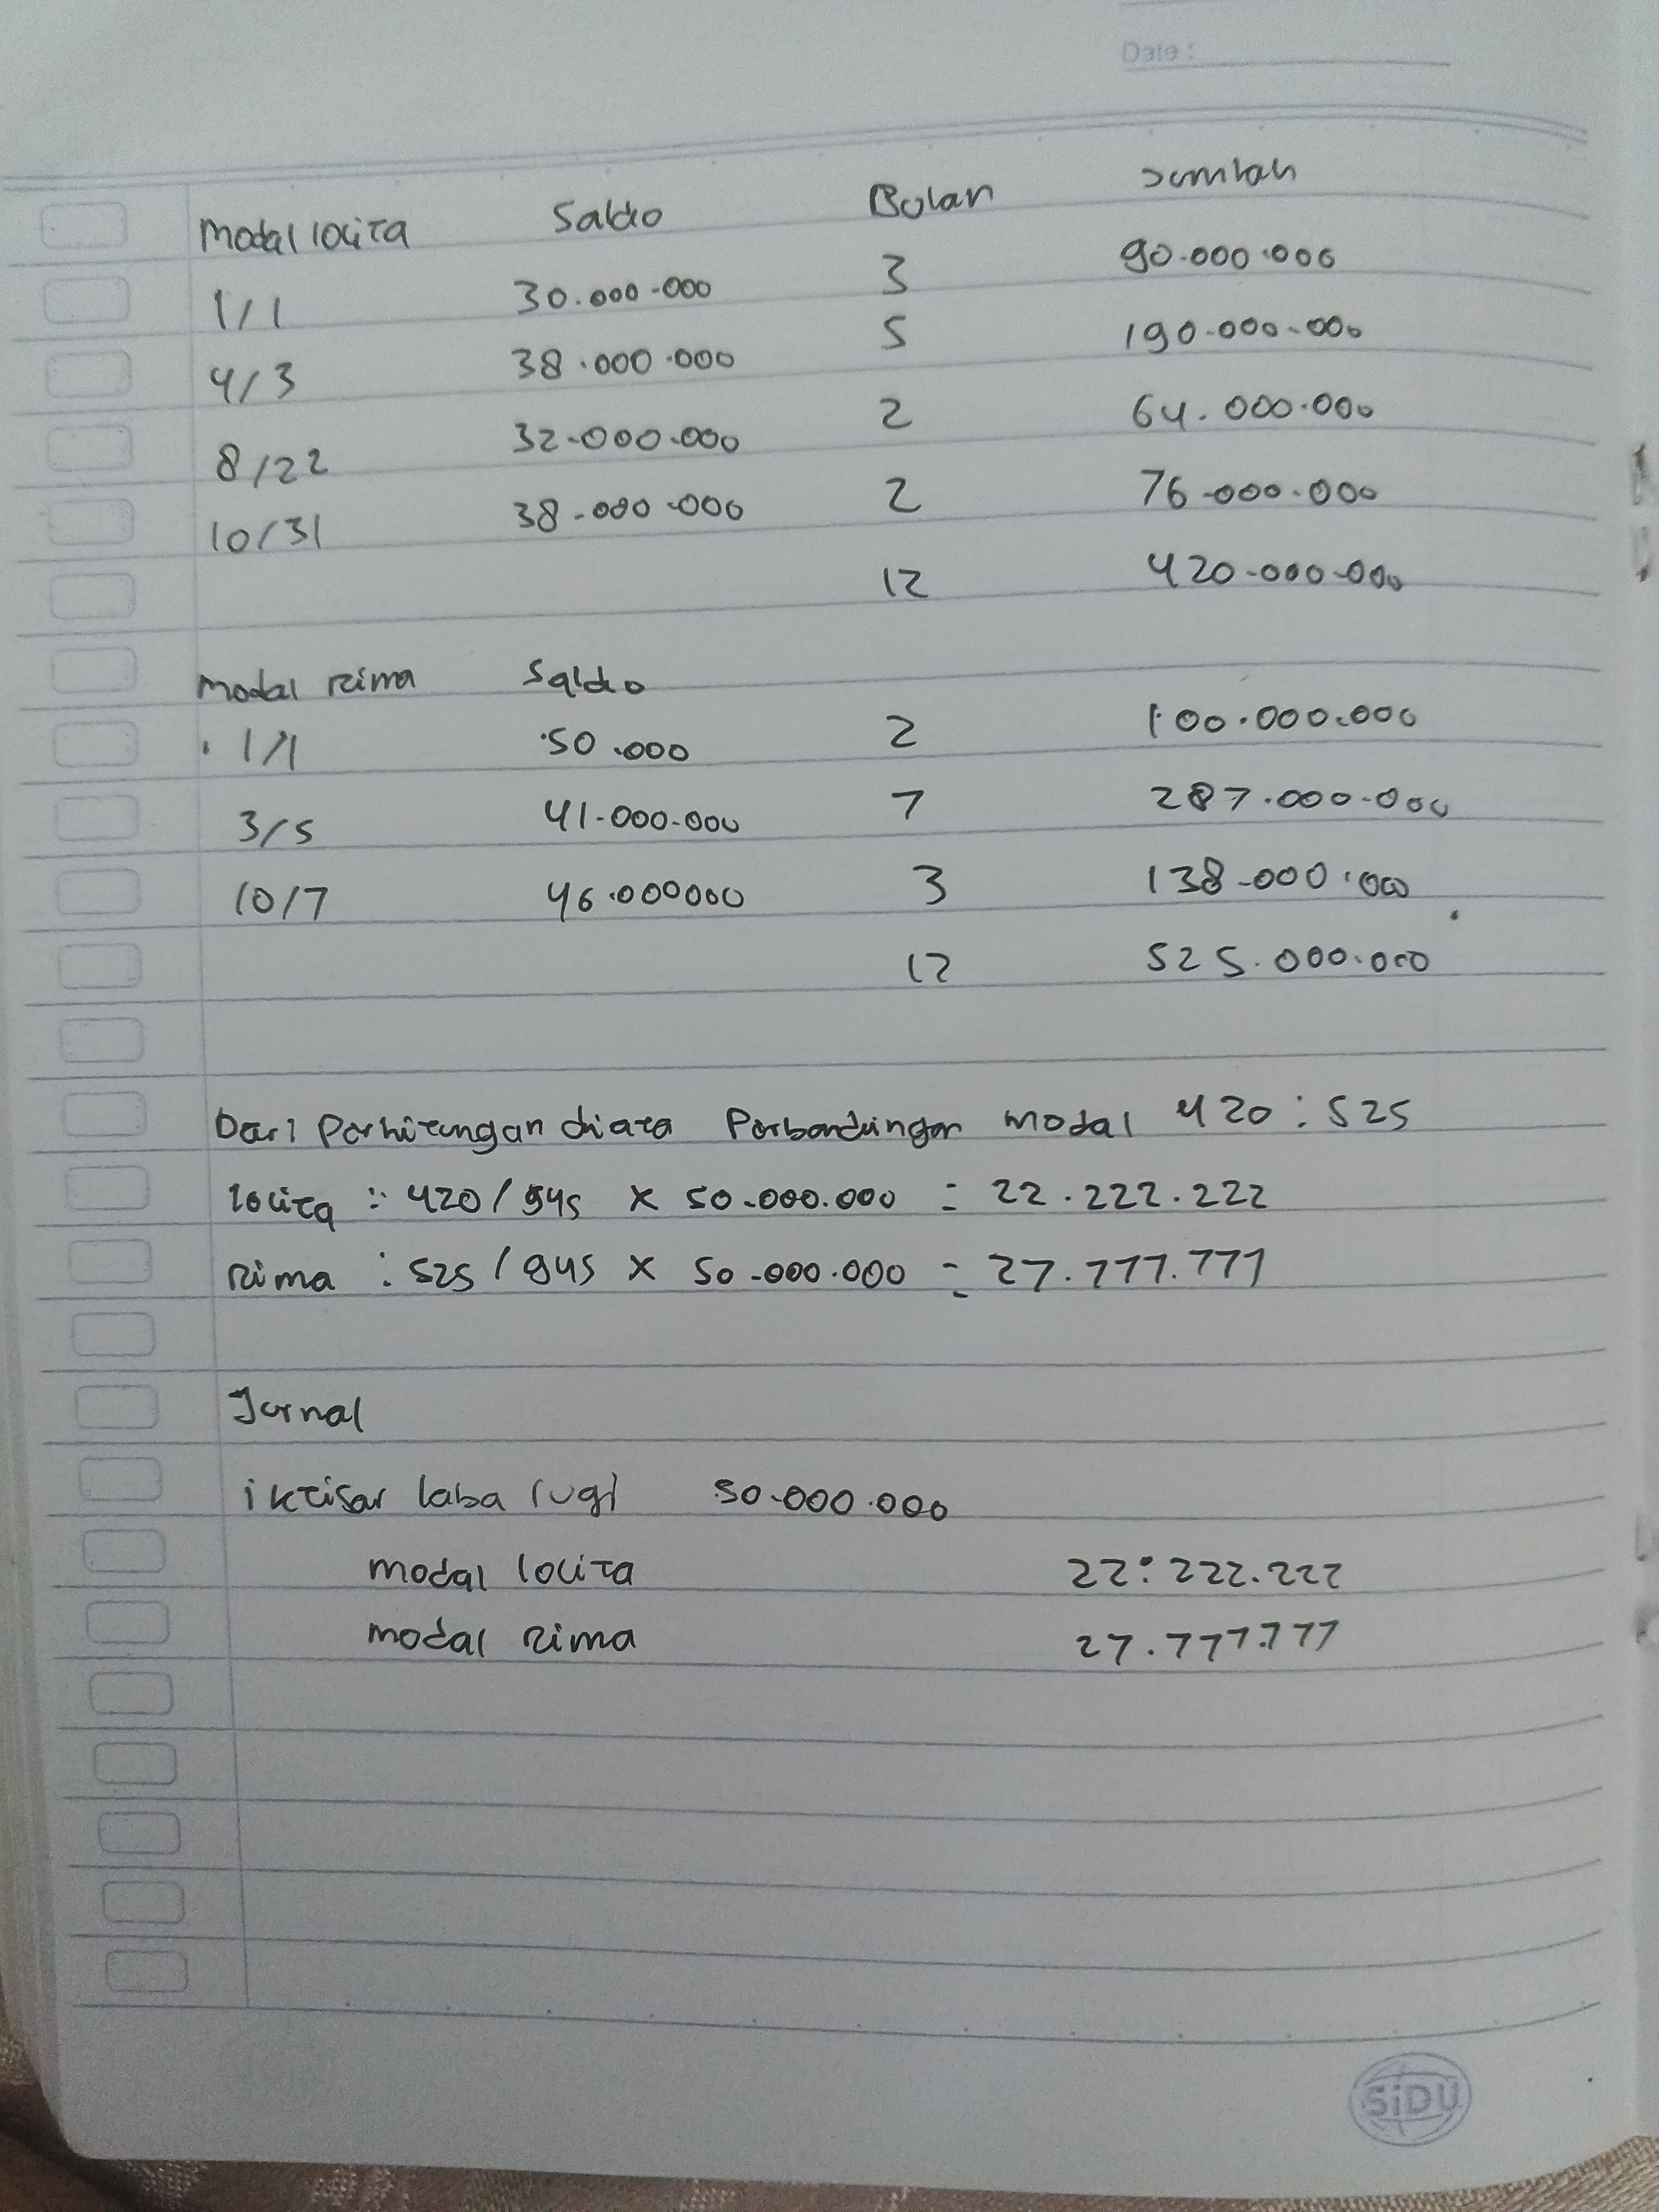 Date :
Modal locita Saldo Bulan Jumlah
1/1 30.000.000 3 90.000.000
4/3 38.000.000 5 190.000.000
8/22 32.000.000 2 64.000.000
10/31 38.000.000 2 76.000.000
12 420.000.000
Modal rima Saldo
1/1 50.000 2 100.000.000
3/5 41.000.000 7 287.000.000
10/7 46.000000 3 138.000.000
12 525.000.000
Dari Perhitungan diata Perbandingan modal 420 : 525
locita : 420/945 x 50.000.000 = 22.222.222
rima : 525/945 x 50.000.000 = 27.777.777
Jurnal
iktisar laba rugi 50.000.000
modal locita 22.222.222
modal rima 27.777.777
SiDU